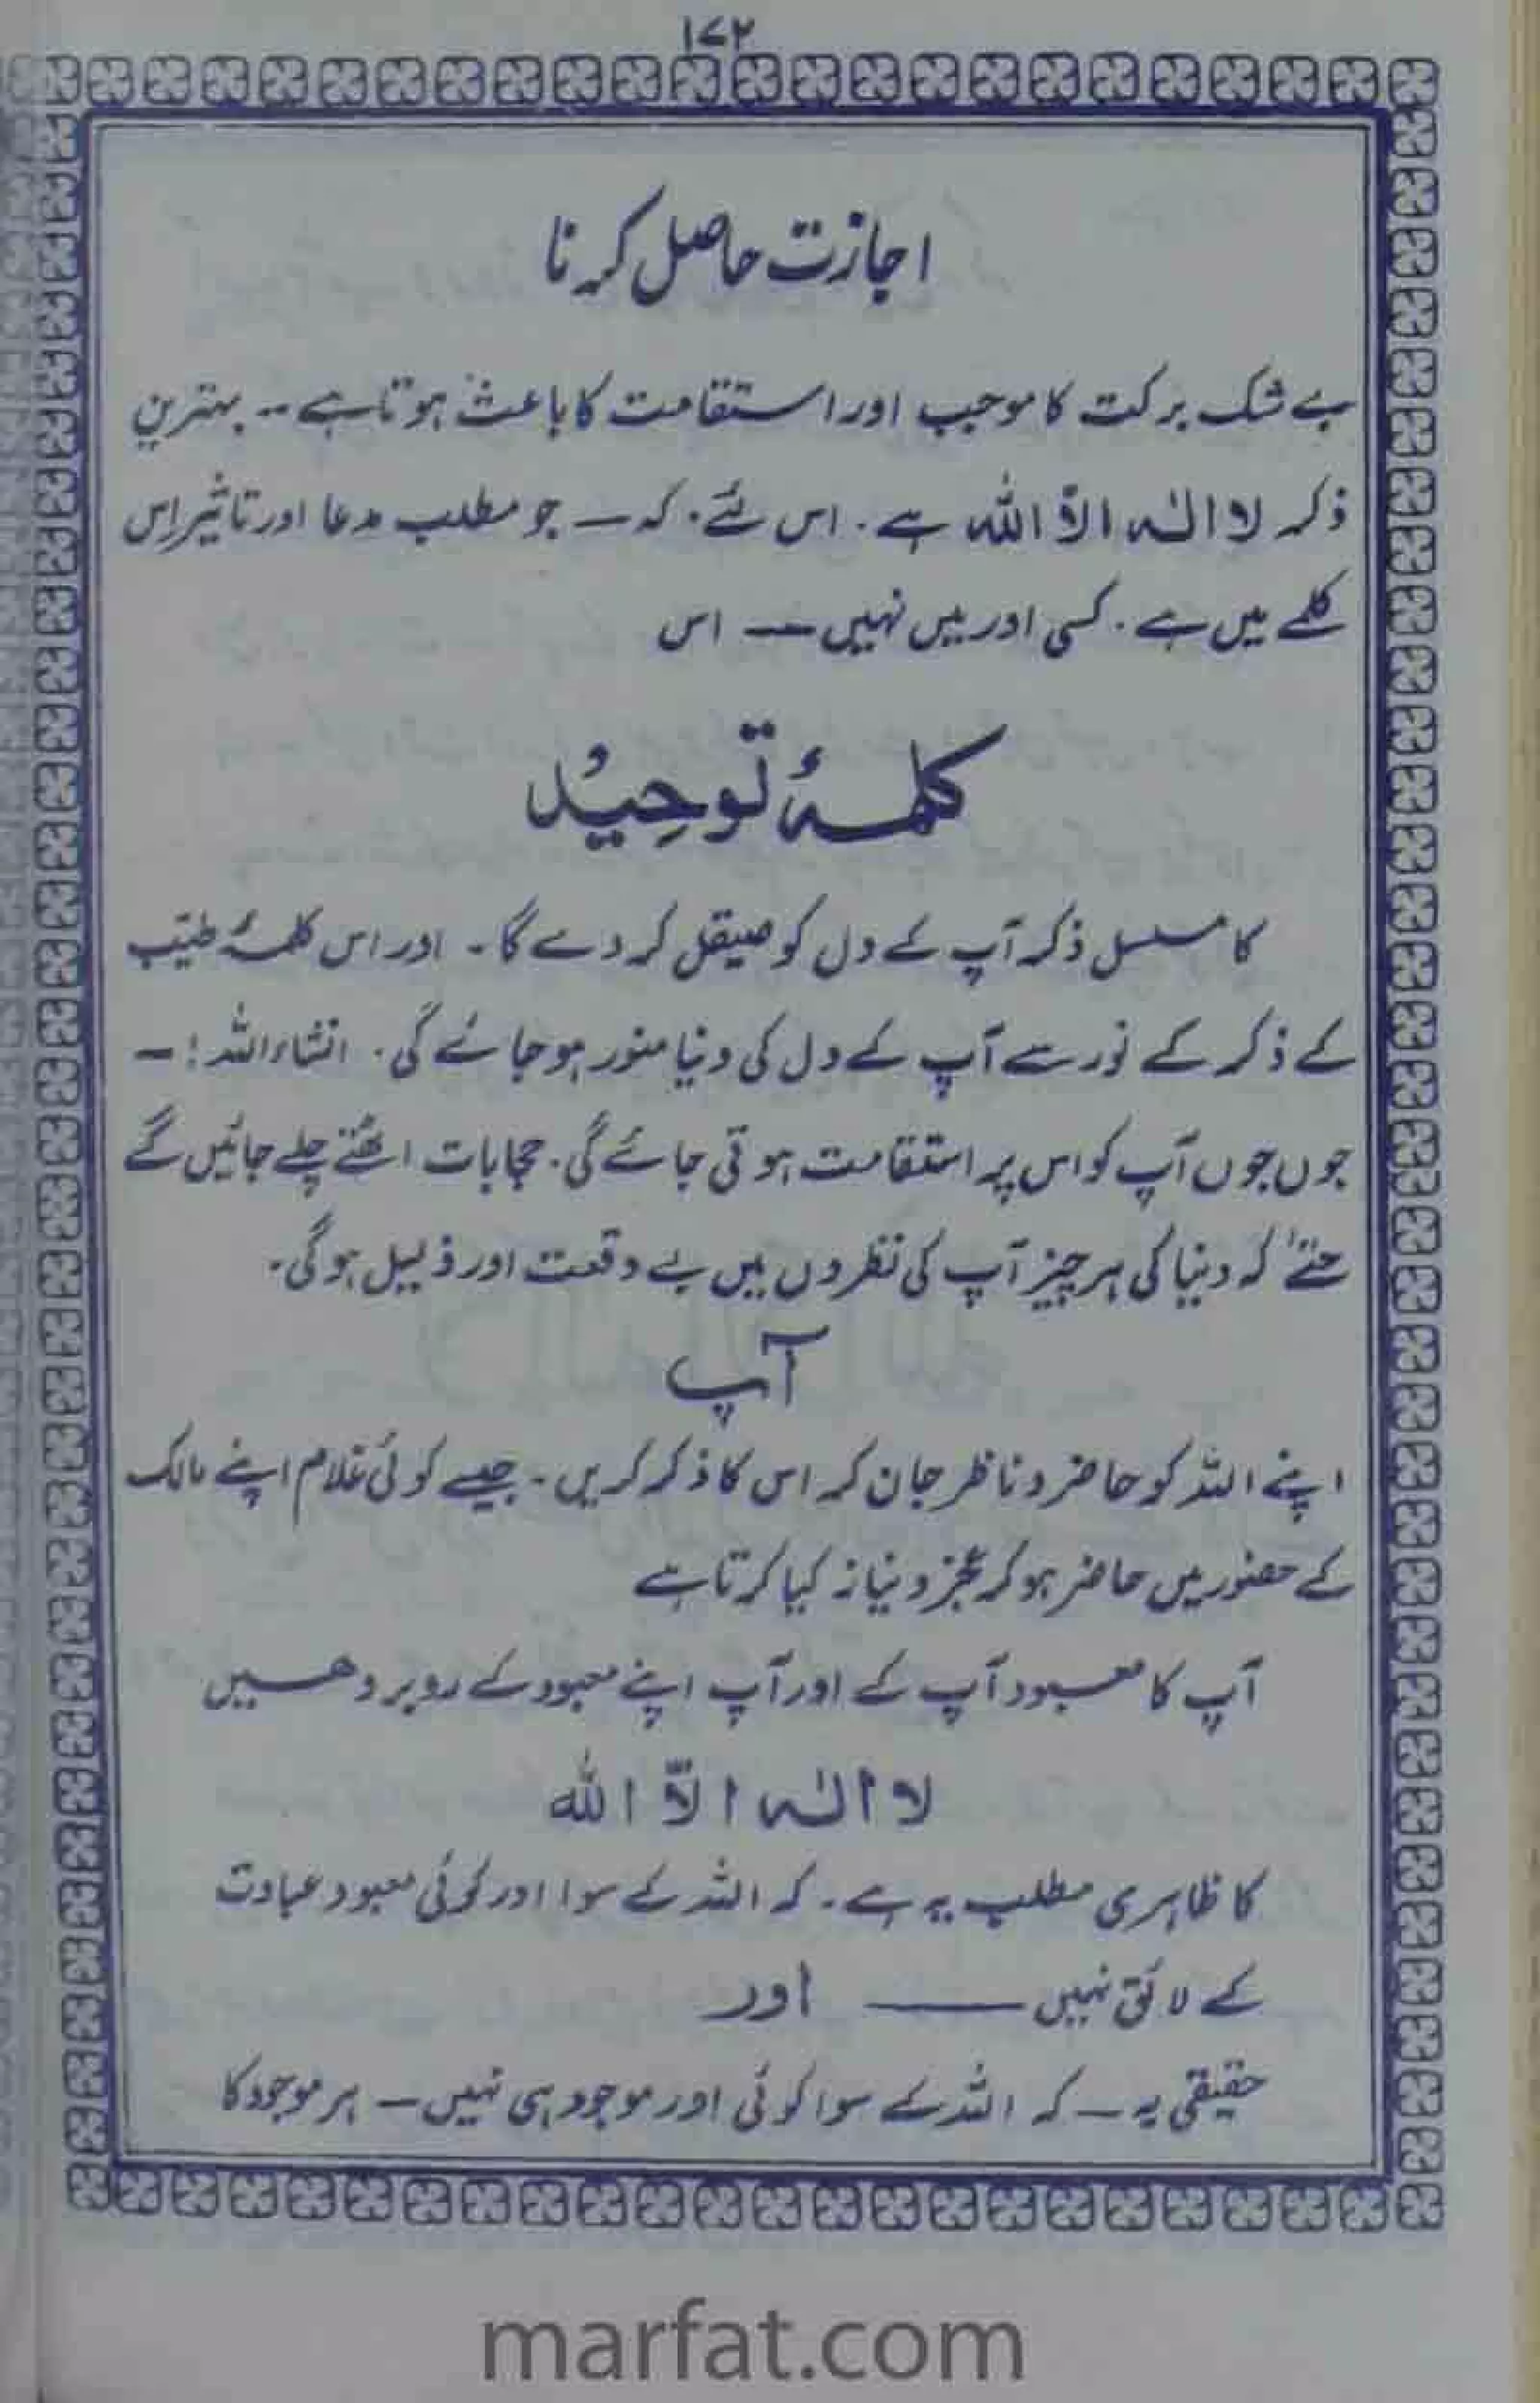 ۱۷۲
اجازت حاصل کرنا
بے شک برکت کا موجب اور استقامت کا باعث ہوتا ہے -- بہترین
ذکر لا الٰہ الاّ اللہ ہے۔ اس لئے۔ کہ — جو مطلب مدعا اور تاثیر اِس
کلمے میں ہے۔ کسی اور میں نہیں — اس
کلمۂ توحیُد
کا مسلسل ذکر آپ کے دل کو صیقل کر دے گا۔ اور اس کلمۂ طیّب
کے ذکر کے نور سے آپ کے دل کی دنیا منور ہو جائے گی۔ انشاءاللہ! —
جوں جوں آپ کو اس پر استقامت ہوتی جائے گی۔ حجابات اٹھتے چلے جائیں گے
حتےٰ کہ دنیا کی ہر چیز آپ کی نظروں میں بے وقعت اور ذلیل ہو گی۔
آپ
اپنے اللہ کو حاضر و ناظر جان کر اس کا ذکر کریں۔ جیسے کوئی غلام اپنے مالک
کے حضور میں حاضر ہو کر عجز و نیاز کیا کرتا ہے
آپ کا معبود آپ کے اور آپ اپنے معبود کے روبرو ھیں
لا الٰہ الاّ اللہ
کا ظاہری مطلب یہ ہے۔ کہ اللہ کے سوا اور کوئی معبود عبادت
کے لائق نہیں —— اور
حقیقی یہ — کہ اللہ کے سوا کوئی اور موجود ہی نہیں — ہر موجود کا
marfat.com